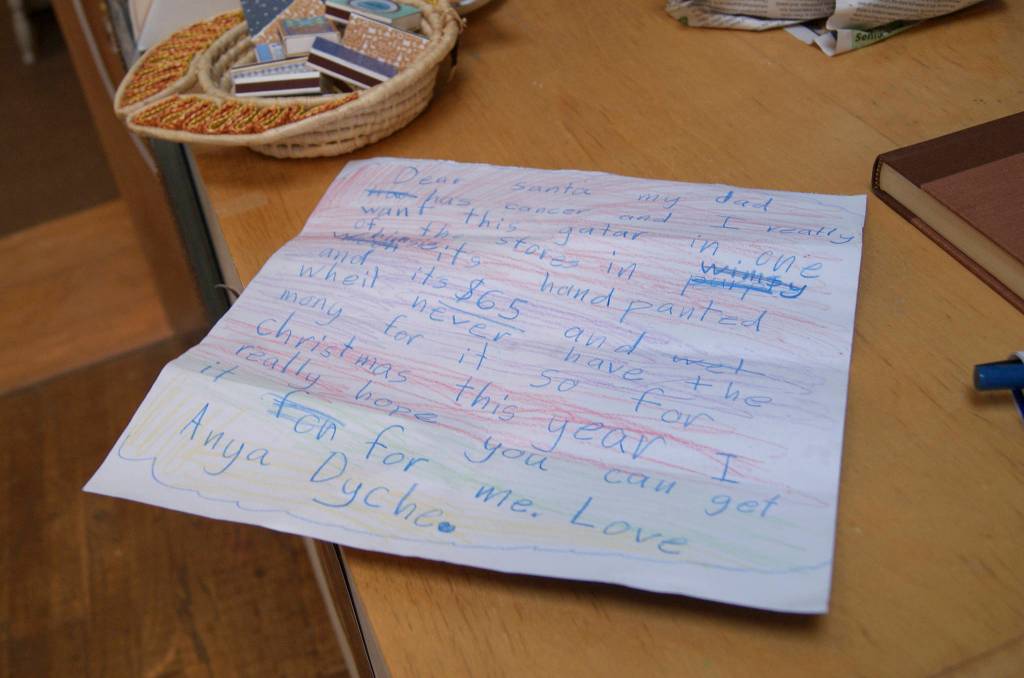 Dear santa my dad
has cancer and I really
want this gatar in one
of the stores in
and its hand panted
wheil its $65 and
never have the
mony for it so for
christmas this year I
really hope you can get
it for me. Love
Anya Dyche.